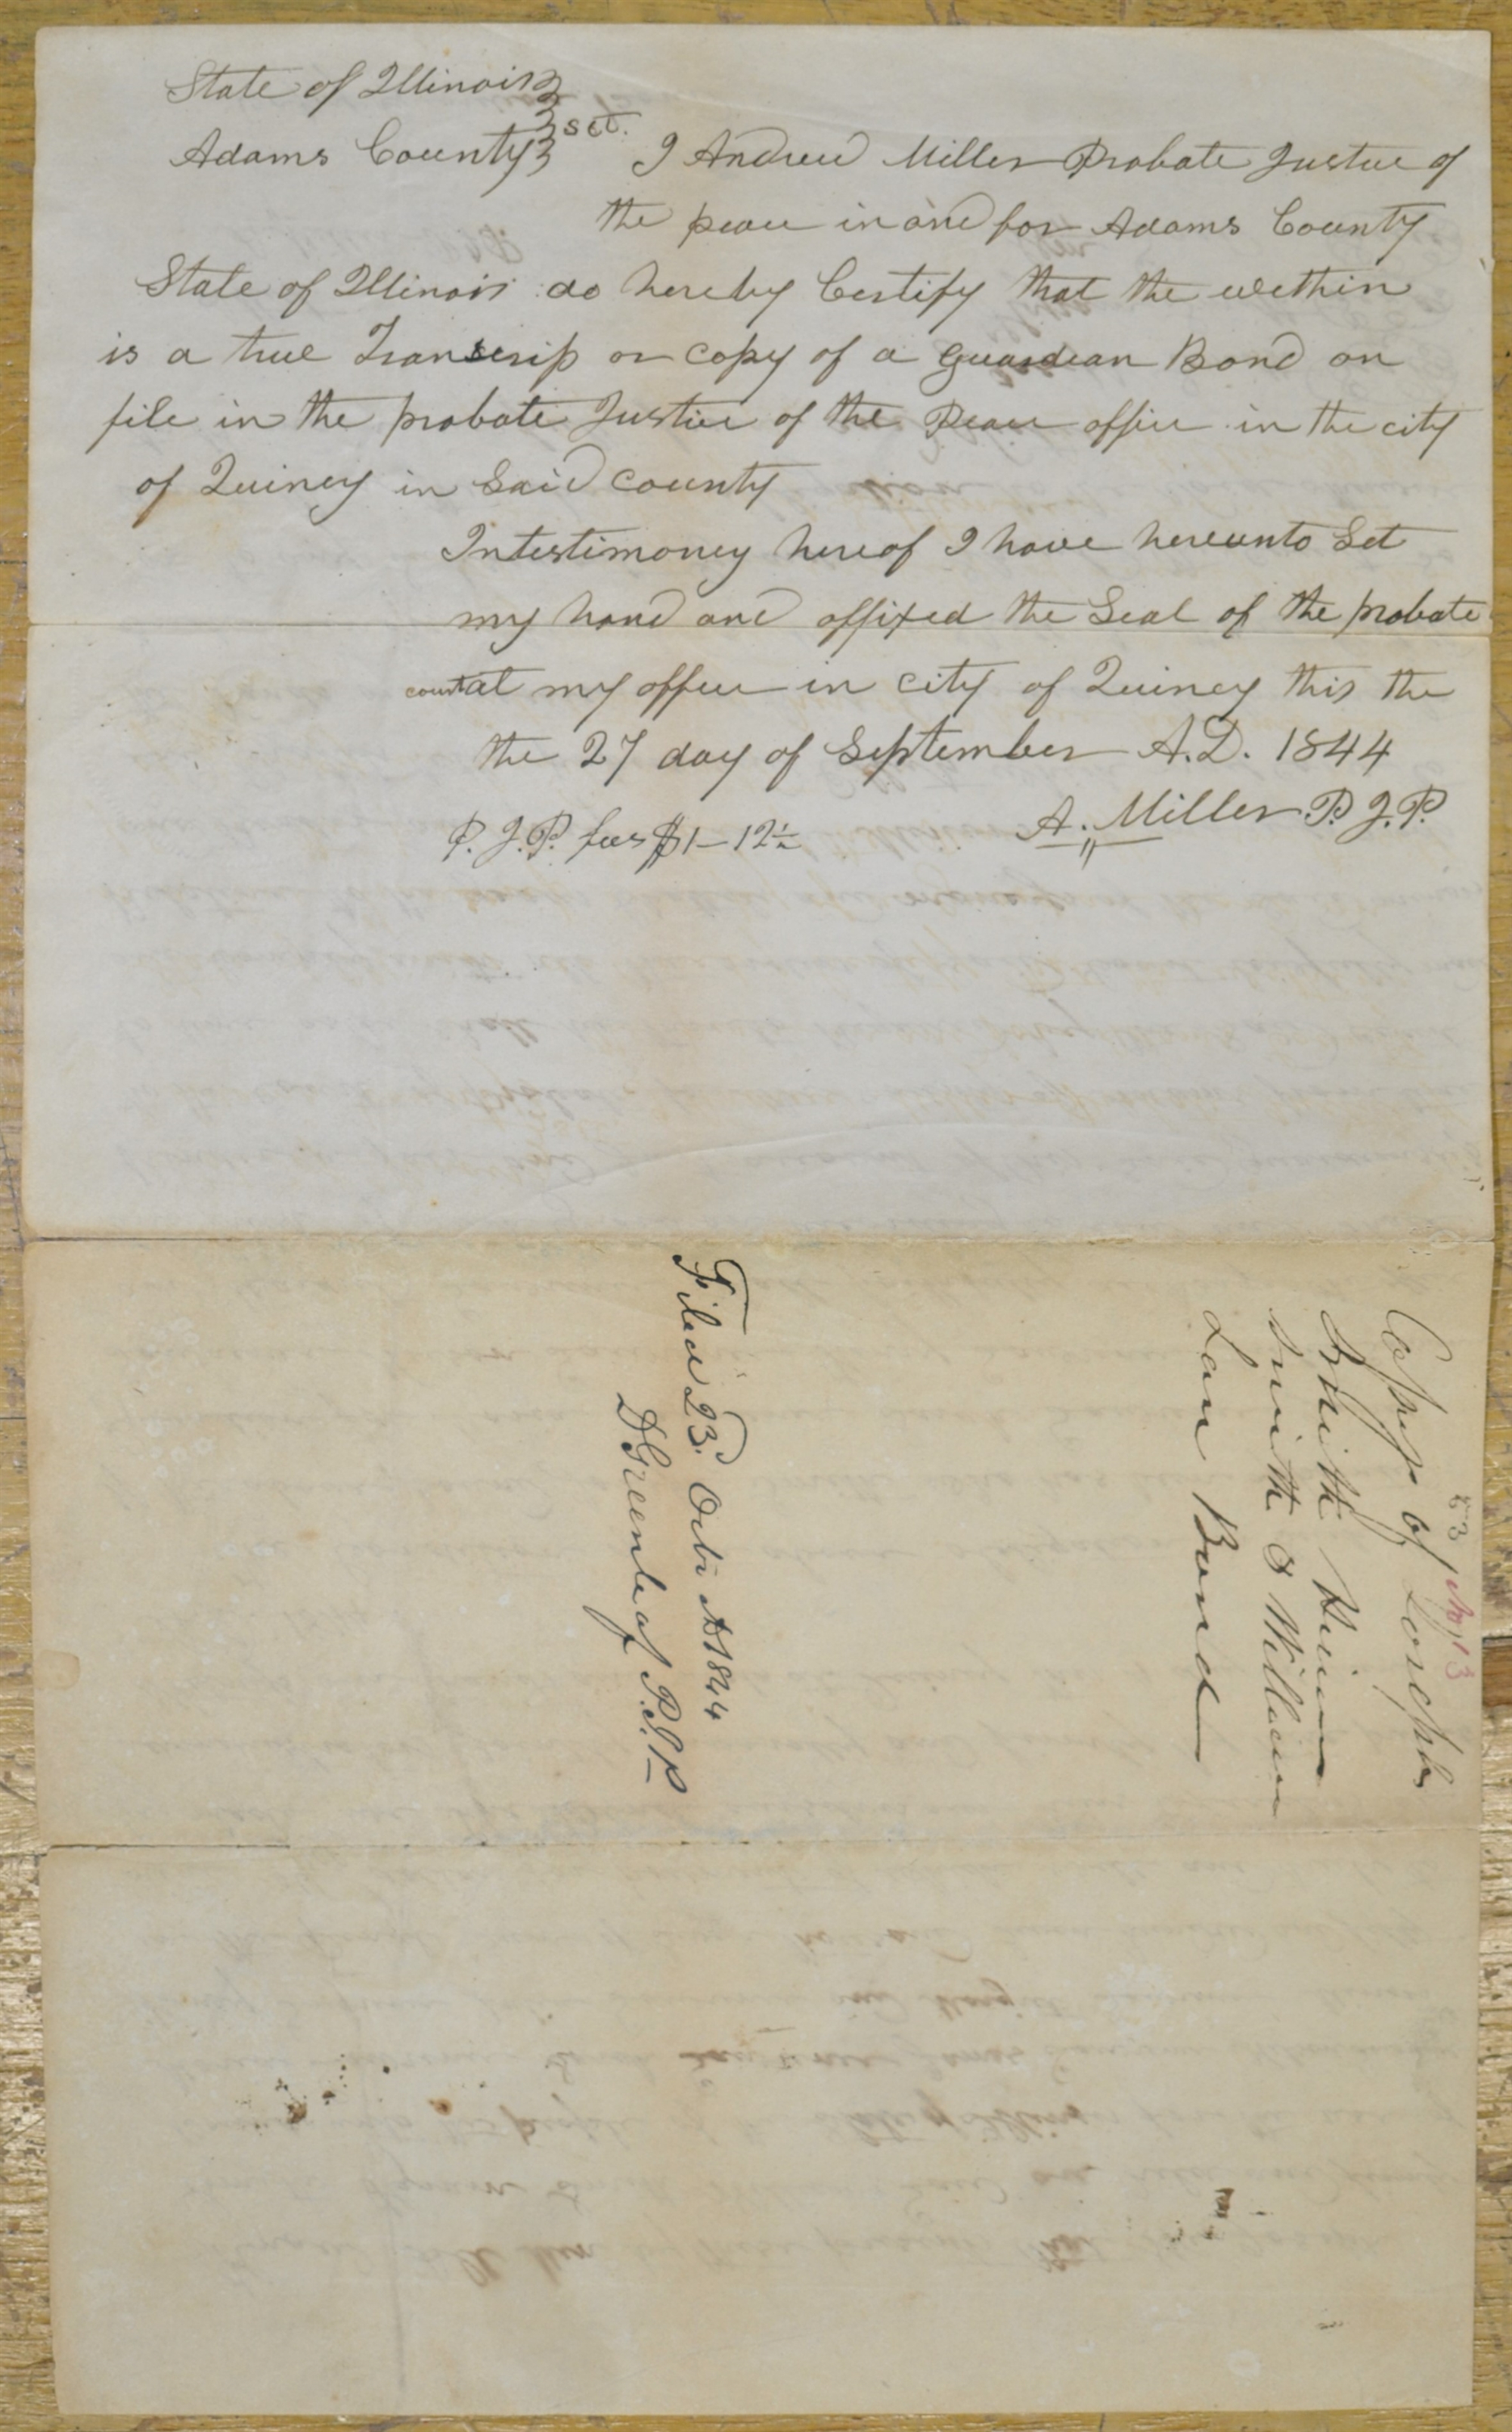 State of Illinois
Adams County sct. I Andrew Miller Probate Justice of
the peace in and for Adams County
State of Illinois do hereby Certify that the within
is a true Transcrip or copy of a guardian Bond on
file in the probate Justice of the Peace office in the city
of Quincy in Said county
Intestimoney hereof I have hereunto Set
my hand and affixed the Seal of the probate
court at my office in city of Quincy this the
the 27 day of September A.D. 1844
P. J. P. fees $1–12½ A. Miller P. J. P.
53 No 13
Copy of Joseph
Smith Hirum
Smith & William
Law Bond
Filed 23. Octr AD 1844
D Greenleaf P.J.P